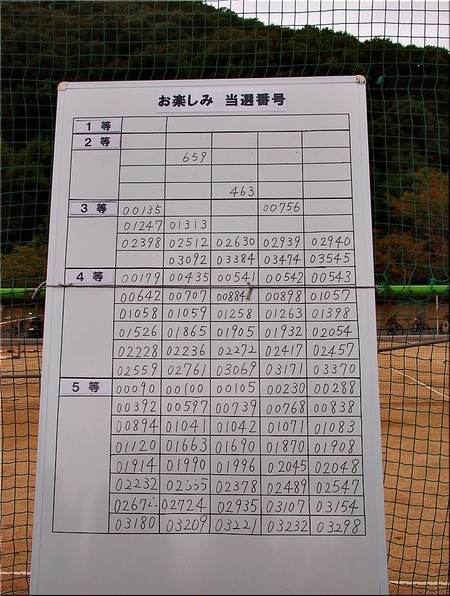 お楽しみ 当選番号
1 等
2 等
659
463
3 等 00135 00756
01247 01313
02398 02512 02630 02939 02940
03092 03384 03474 03545
4 等 00179 00435 00541 00542 00543
00642 00707 00884 00898 01057
01058 01059 01258 01263 01398
01526 01865 01905 01932 02054
02228 02236 02272 02417 02457
02559 02761 03069 03171 03370
5 等 00090 00100 00105 00230 00288
00392 00597 00739 00768 00838
00894 01041 01042 01071 01083
01120 01663 01690 01870 01908
01914 01990 01996 02045 02048
02232 02378 02489 02547
02724 02935 03107 03154
03180 03209 03221 03232 03298